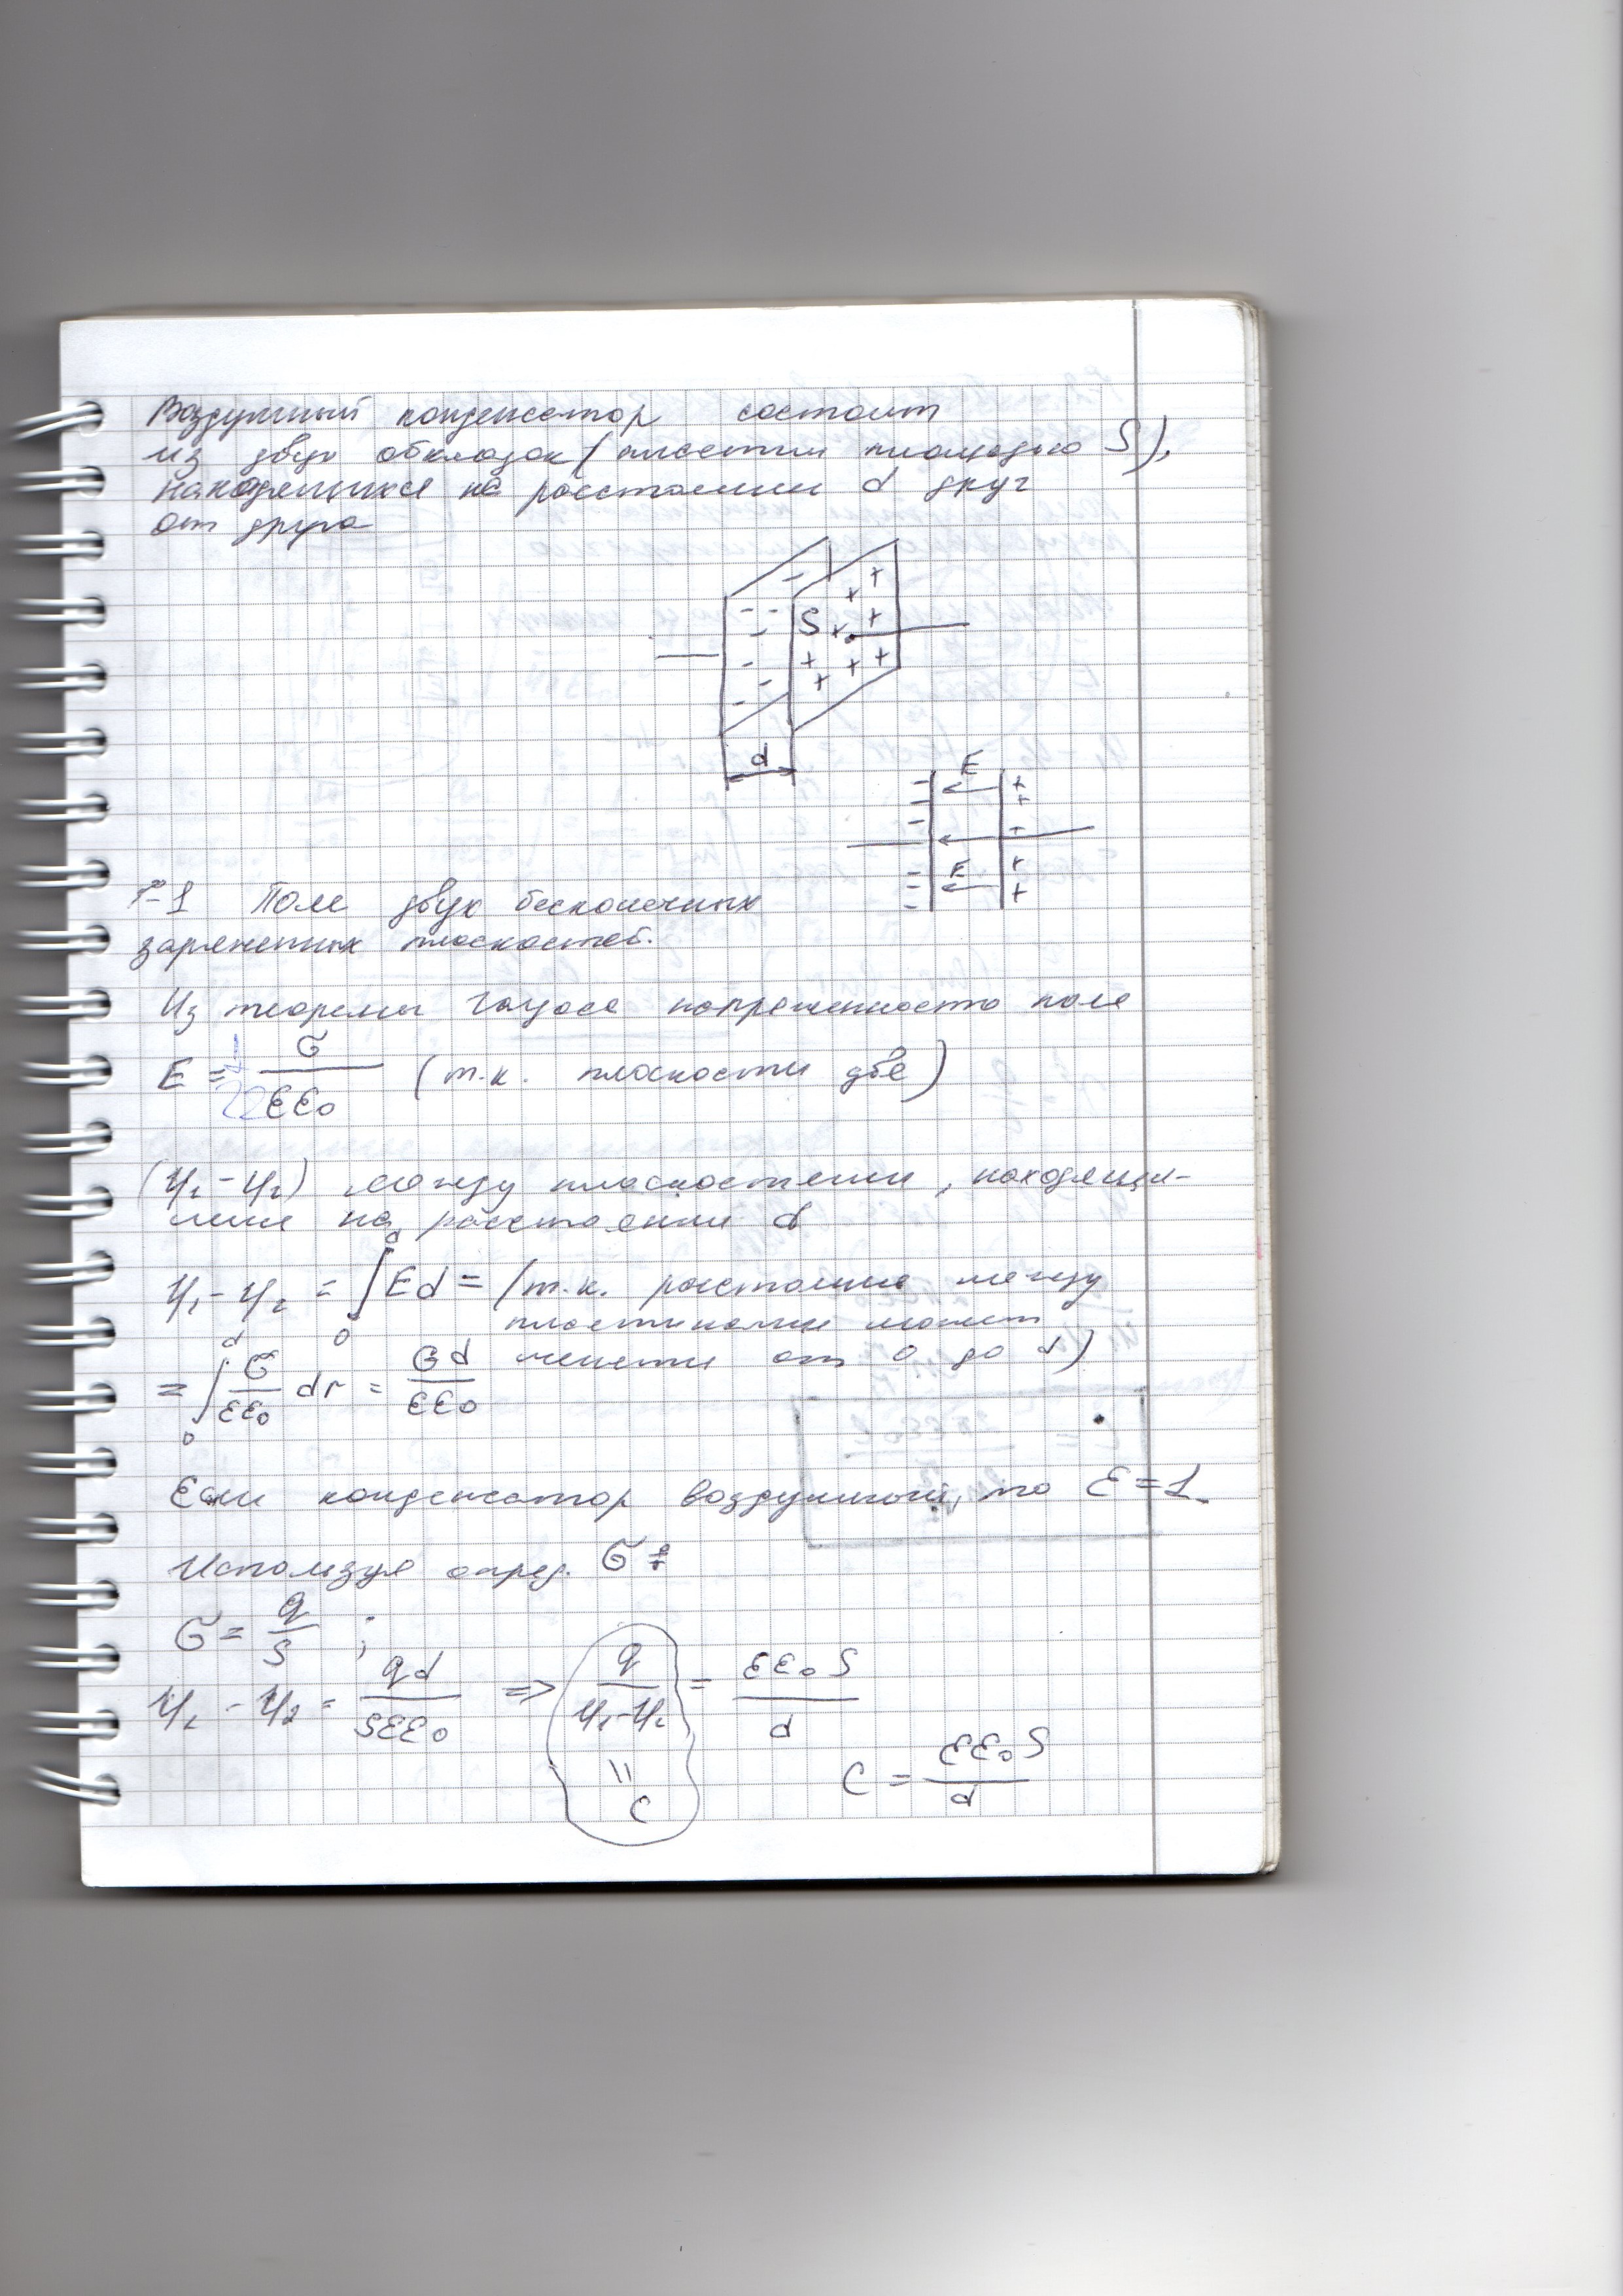 Воздушный конденсатор состоит
из двух обкладок (пластин площадью S),
находящихся на расстоянии d друг
от друга
- + + - - S + + - + + + - + - + -
d
E
- + - + - + - + - + -
E
Поле двух бесконечных
заряженных плоскостей.
Из теоремы Гаусса напряженность поля
E = σ/εε₀ (т.к. плоскости две)
(φ₁ - φ₂) между плоскостями, находящи-
мися на расстоянии d
φ₁ - φ₂ = ∫₀ᵈ Ed = (т.к. расстояние между
пластинами может
= ∫₀ᵈ σ/εε₀ dr = σd/εε₀ менятся от 0 до d)
Если конденсатор воздушный, то ε = 1.
Используя опред. σ
σ = q/S ;
φ₁ - φ₂ = qd/Sεε₀ => q/φ₁-φ₂ = εε₀S/d
= C
C = εε₀S/d